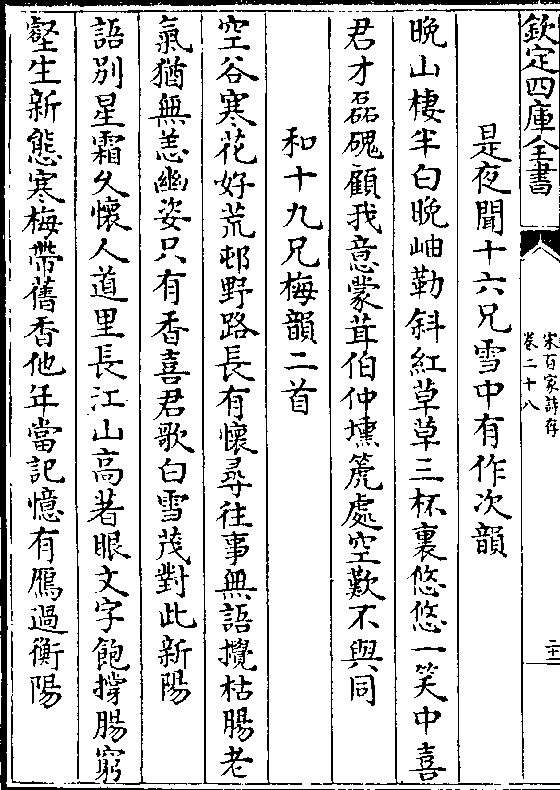 欽定四庫全書
宋百家詩存
卷二十八
二十
是夜聞十六兄雪中有作次韻
晩山棲半白晩岫勒斜紅草草三杯裏悠悠一笑中喜
君才磊磈顧我意蒙茸伯仲壎箎處空歎不與同
和十九兄梅韻二首
空谷寒花好荒邨野路長有懷尋往事無語攪枯腸老
氣猶無恙幽姿只有香喜君歌白雪茂對此新陽
語別星霜久懷人道里長江山高著眼文字飽撐腸窮
壑生新態寒梅帶舊香他年當記憶有鴈過衡陽